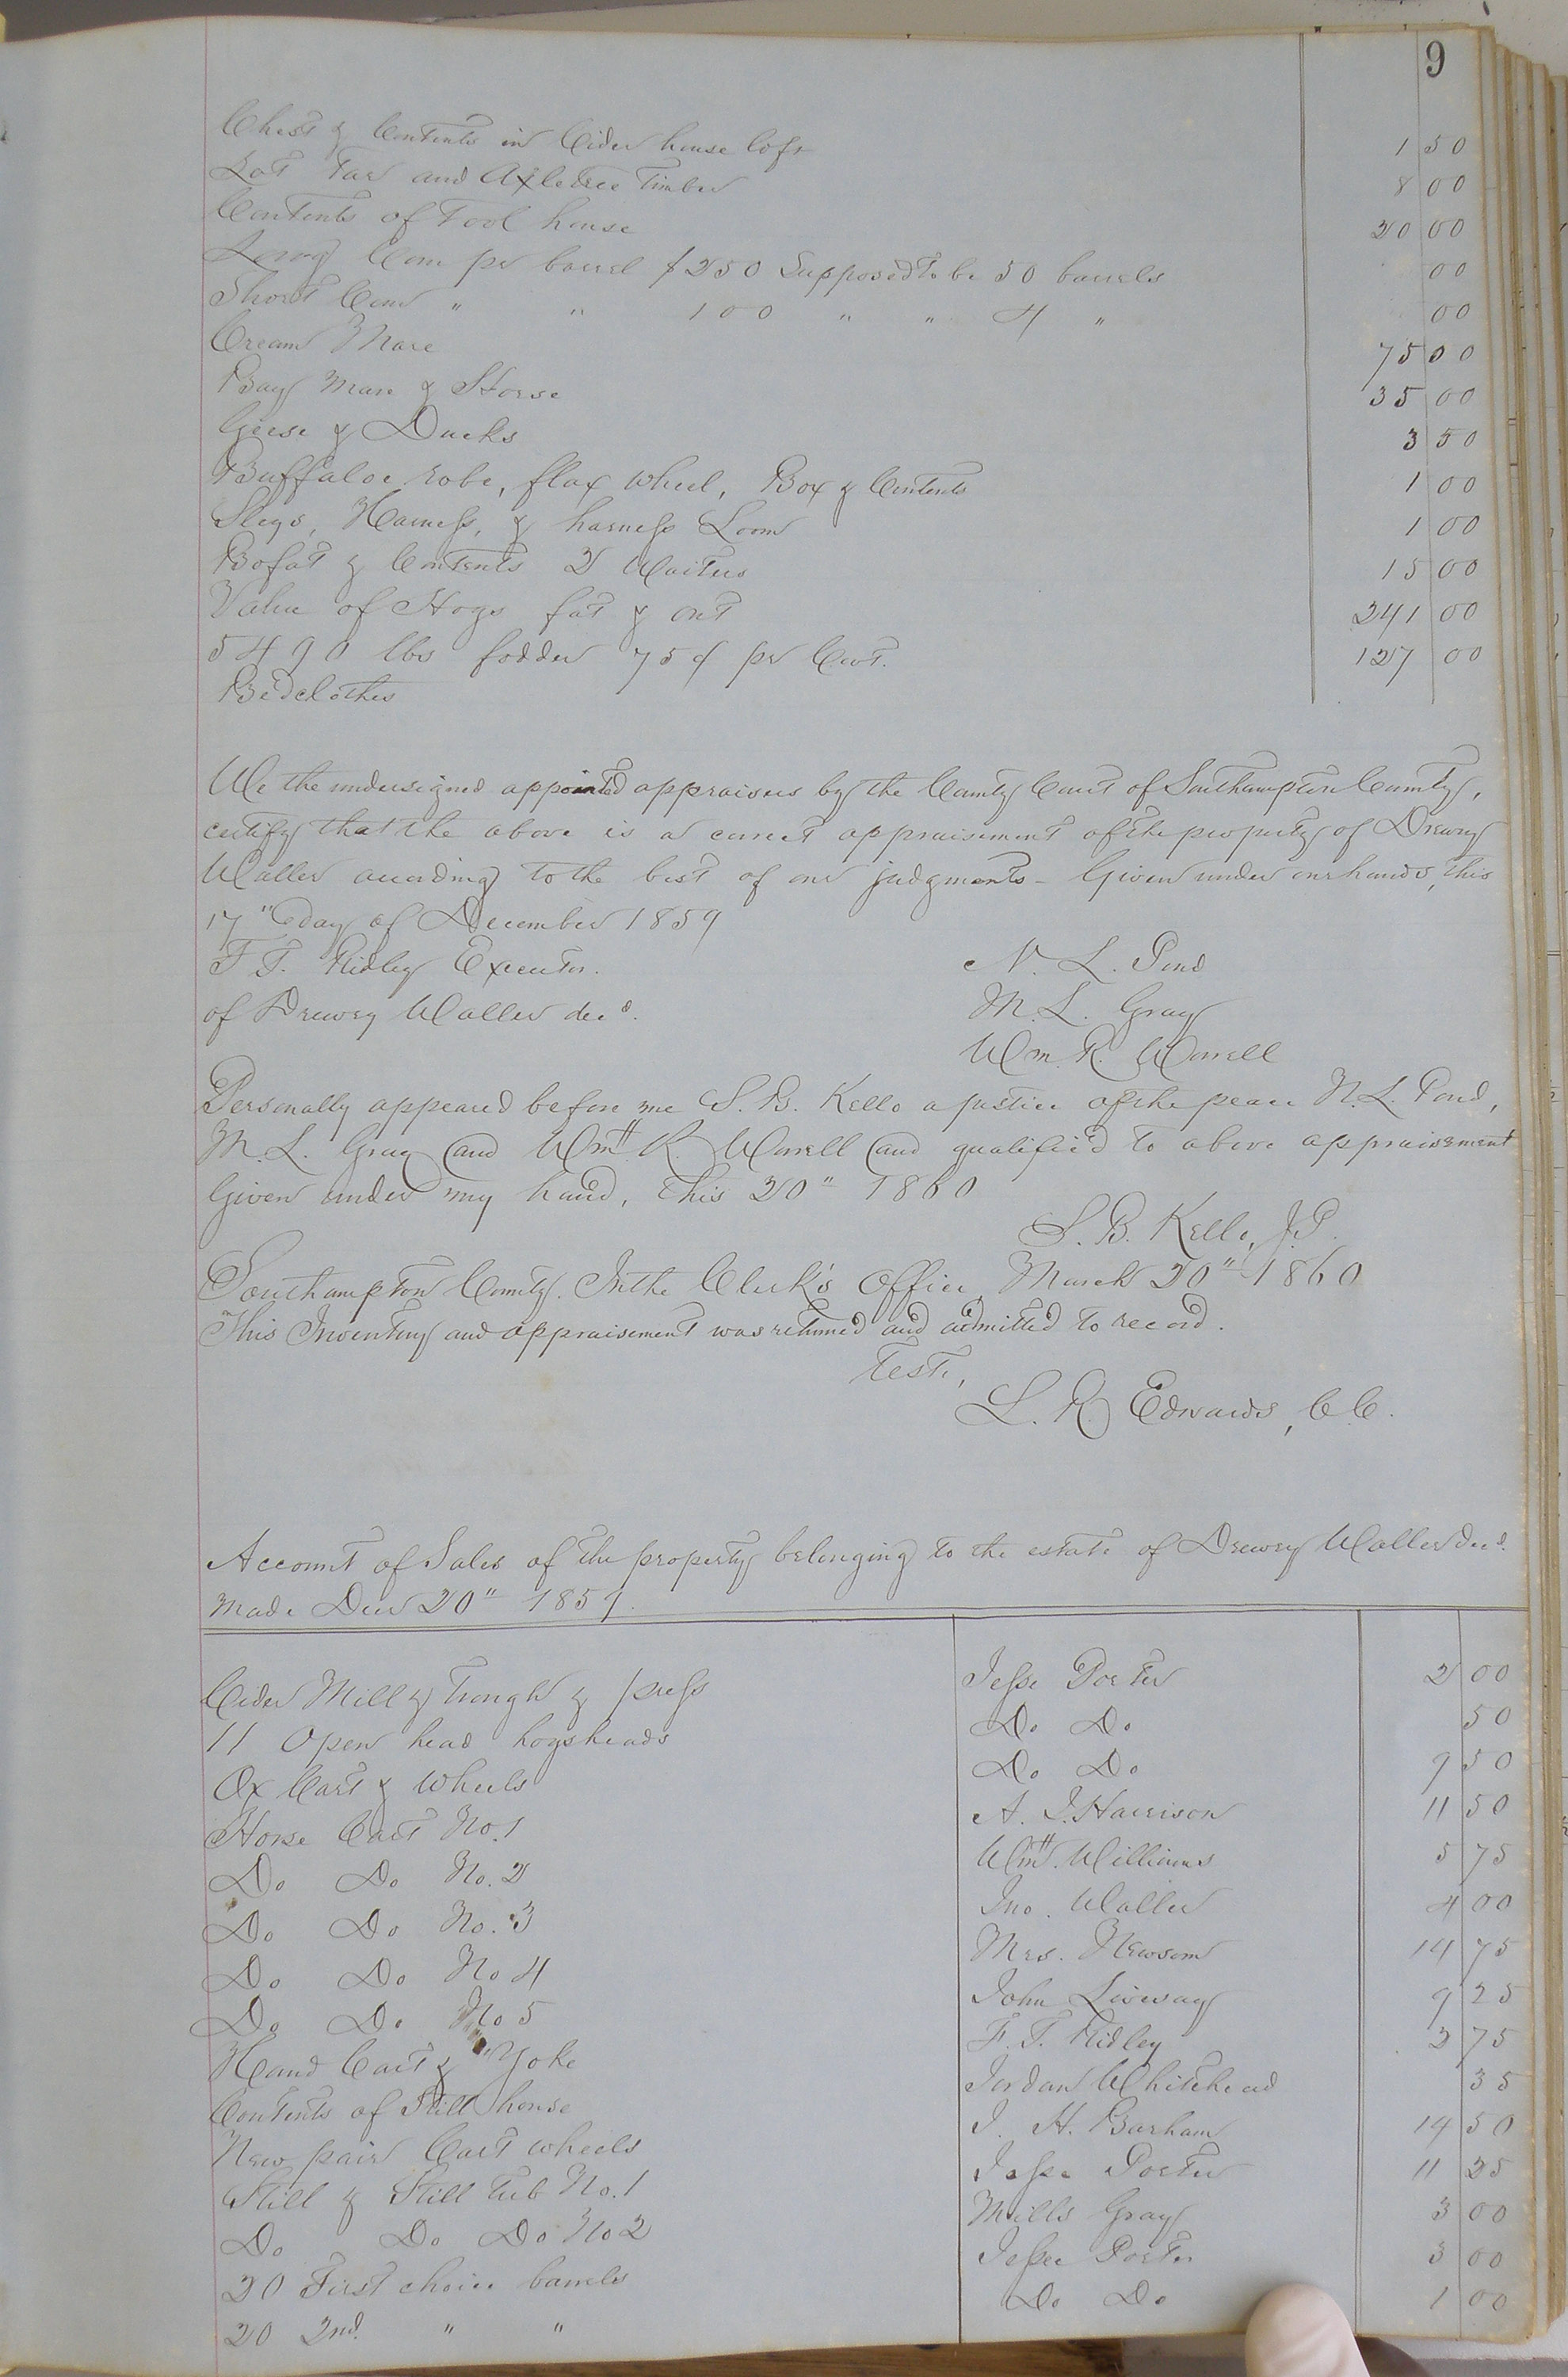 9
Chest & Contents in Cider house loft 1 50
Lot Tar and Axletree Timber 8 00
Contents of Tool house 20 00
Long Corn pr barrel $250 Supposed to be 50 barrels 00
Short Corn " " 100 " " 4 " 00
Cream Mare 75 00
Bay Mare & Horse 35 00
Geese & Ducks 3 50
Buffaloe robe, flax wheel, Box & Contents 1 00
Slays, Harness, & harness Loom 1 00
Bofat & Contents 2 Waiters 15 00
Value of Hogs fat & out 241 00
5490 lbs fodder 75¢ pr Cwt. 127 00
Bedclothes
We the undersigned appointed appraisers by the County Court of Southampton County,
certify that the above is a correct appraisement of the property of Drewry
Waller according to the best of our judgments - Given under our hands, this
17" day of December 1859
F T. Ridley Executor. N. L. Pond
of Drewry Waller decd. M. L. Gray
Wm. R. Worrell
Personally appeared before me S. B. Kello a justice of the peace N. L. Pond,
M. L. Gray and Wm. R. Worrell and qualified to above appraisement
Given under my hand, this 20" 1860
S. B. Kello, J.P.
Southampton County. In the Clerk's Office, March 20" 1860
This Inventory and appraisement was returned and admitted to record.
Teste,
L. R. Edwards, C C.
Account of Sales of the property belonging to the estate of Drewry Waller decd.
made Decr 20" 1859.
Cider Mill & Trough & press Jesse Porter 2 00
11 Open head hogsheads Do Do 50
Ox Cart & Wheels Do Do 9 50
Horse Cart No. 1 A. J. Harrison 11 50
Do Do No. 2 Wm. Williams 5 75
Do Do No. 3 Jno. Waller 4 00
Do Do No 4 Mrs. Newsom 14 75
Do Do No 5 John Livesay 9 25
Hand Cart & Yoke F. T. Ridley 2 75
Contents of Still house Jordan Whitehead 35
New pair Cart wheels J. H. Barham 14 50
Still & Still tub No. 1 Jesse Porter 11 25
Do Do Do No 2 Mills Gray 3 00
20 First choice barrels Jesse Porter 3 00
20 2nd. " " Do Do 1 00